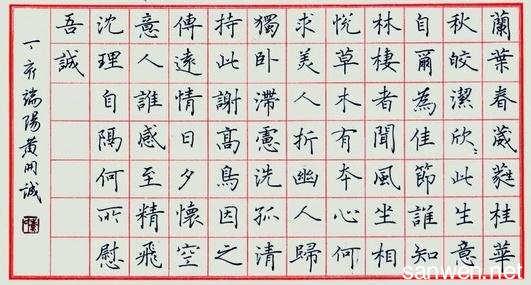 蘭葉春葳蕤桂華
秋皎潔欣〻此生意
自爾為佳節誰知
林棲者聞風坐相
悅草木有本心何
求美人折幽人歸
獨卧滯慮洗孤清
持此謝高鳥因之
傳遠情日夕懷空
意人誰感至精飛
沈理自隔何所慰
吾誠
丁亥端陽黄開誠
sanwen.net